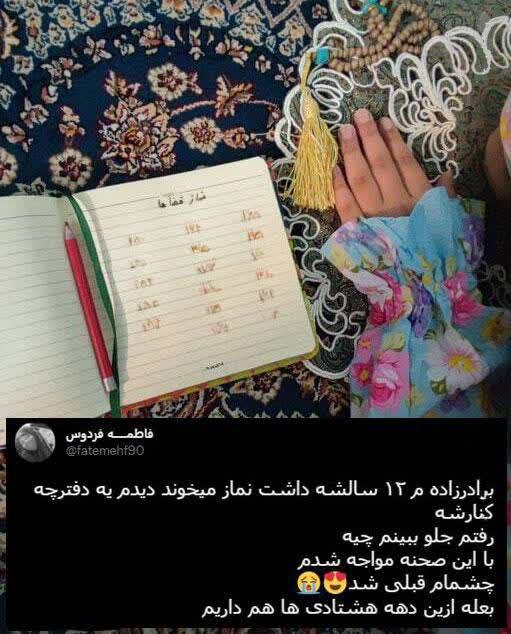 نماز قضا ها
فاطمـــه فردوس
@fatemehf90
برادرزاده م ۱۲ سالشه داشت نماز میخوند دیدم یه دفترچه
کنارشه
رفتم جلو ببینم چیه
با این صحنه مواجه شدم
چشمام قبلی شد😍😭
بعله ازین دهه هشتادی ها هم داریم